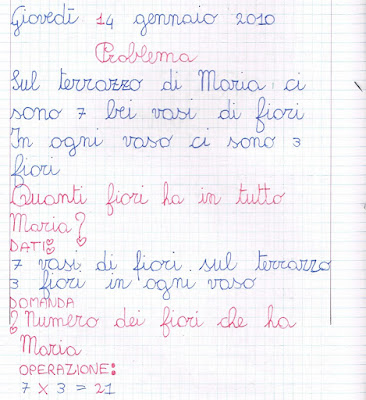 Giovedì 14 gennaio 2010
Problema
Sul terrazzo di Maria ci
sono 7 bei vasi di fiori
In ogni vaso ci sono 3
fiori
Quanti fiori ha in tutto
Maria?
DATI:
7 vasi di fiori sul terrazzo
3 fiori in ogni vaso
DOMANDA
? Numero dei fiori che ha
Maria
OPERAZIONE:
7 X 3 = 21